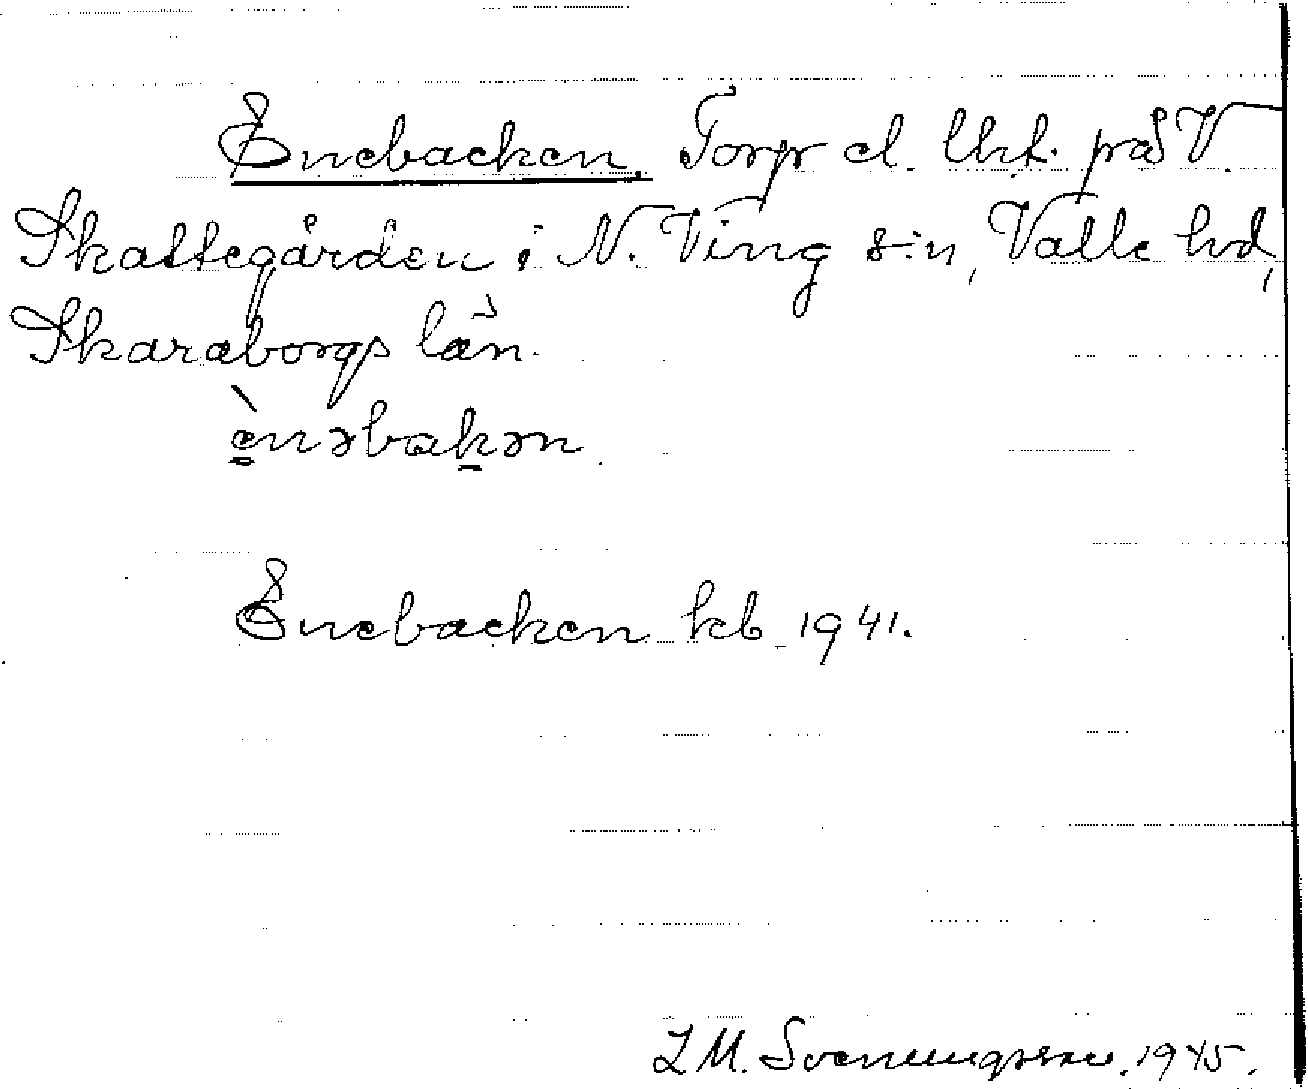 Enebacken. Torp el. lht. på V
Skattegården i N. Ving s:n, Valle hd,
Skaraborgs län.
ènəbakən
Enebacken kb 1941.
L M. Svenungsson. 1945.